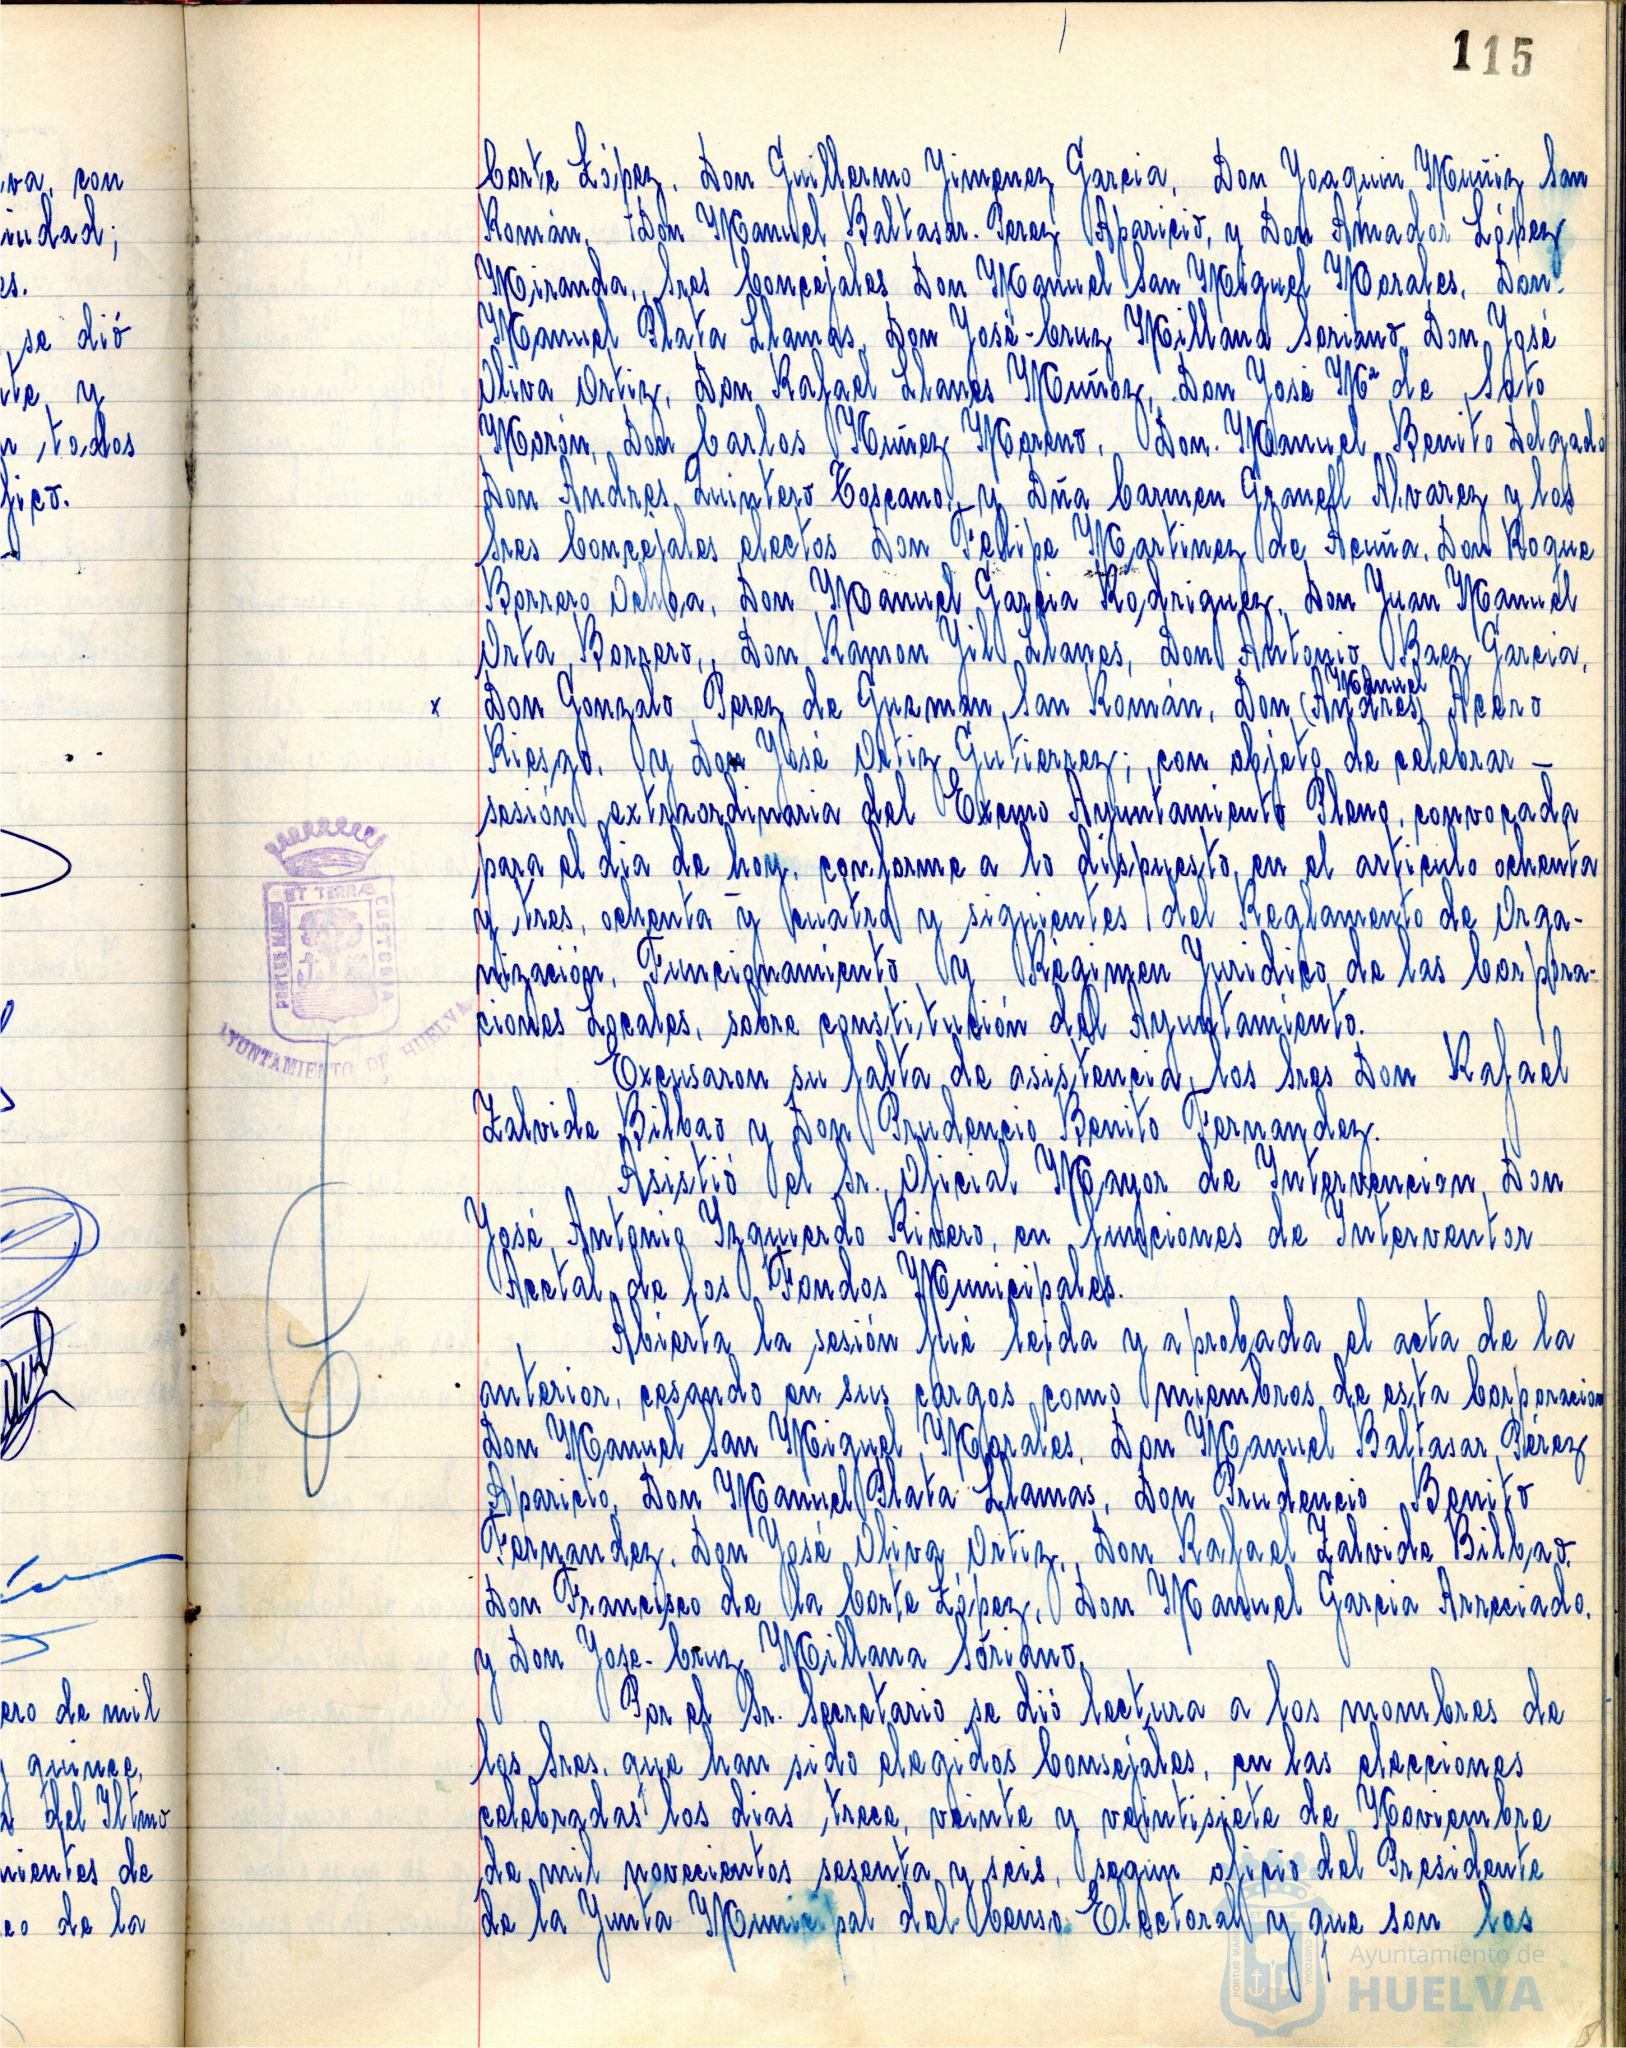 115
va, con
iudad;
es.
, se dió
nte, y
n todos
lico.
ero de mil
y quince,
a del Iltmo
nientes de
co de la
Corte López, Don Guillermo Jimenez Garcia, Don Joaquin Muñiz San
Román, Don Manuel Baltasar Perez Aparicio, y Don Amador López
Miranda, Sres Concejales Don Manuel San Miguel Morales, Don
Manuel Plata Llamas, Don José-Cruz Millana Soriano, Don José
Oliva Ortiz, Don Rafael Llanes Muñoz, Don José Mª de Soto
Morón, Don Carlos Nuñez Moreno, Don Manuel Benito Delgado
Don Andrés Quintero Toscano, y Dña Carmen Granell Alvarez y los
Sres Concejales electos Don Felipe Martinez de Acuña, Don Roque
Borrero Ochoa, Don Manuel Garcia Rodriguez, Don Juan Manuel
Orta Borrero, Don Ramon Gil Llanes, Don Antonio Baez Garcia,
Manuel
x Don Gonzalo Perez de Guzman San Román, Don (Andrés) Acero
Riesgo, y Don José Ortiz Gutierrez; con objeto de celebrar –
sesión extraordinaria del Excmo Ayuntamiento Pleno, convocada
para el dia de hoy, conforme a lo dispuesto en el articulo ochenta
y tres, ochenta y cuatro y siguientes del Reglamento de Orga-
nización, Funcionamiento y Régimen Juridico de las Corpora-
ciones Locales, sobre constitución del Ayuntamiento.
Excusaron su falta de asistencia, los Sres Don Rafael
Zalvide Bilbao y Don Prudencio Benito Fernandez.
Asistió el Sr. Oficial Mayor de Intervencion, Don
José Antonio Izquierdo Rivero, en funciones de Interventor
Acctal de los Fondos Municipales.
Abierta la sesión fué leida y aprobada el acta de la
anterior, cesando en sus cargos como miembros de esta Corporacion
Don Manuel San Miguel Morales, Don Manuel Baltasar Pérez
Aparicio, Don Manuel Plata Llamas, Don Prudencio Benito
Fernandez, Don José Oliva Ortiz, Don Rafael Zalvide Bilbao,
Don Francisco de la Corte López, Don Manuel Garcia Arreciado,
y Don Jose-Cruz Millana Soriano.
Por el Sr. Secretario se dió lectura a los nombres de
los Sres. que han sido elegidos Consejales, en las elecciones
celebradas los dias trece, veinte y veintisiete de Noviembre
de mil novecientos sesenta y seis, segun oficio del Presidente
de la Junta Municipal del Censo Electoral y que son los
PORTUS MARIS ET TERRÆ CUSTODIA
AYUNTAMIENTO DE HUELVA
Ayuntamiento de
HUELVA